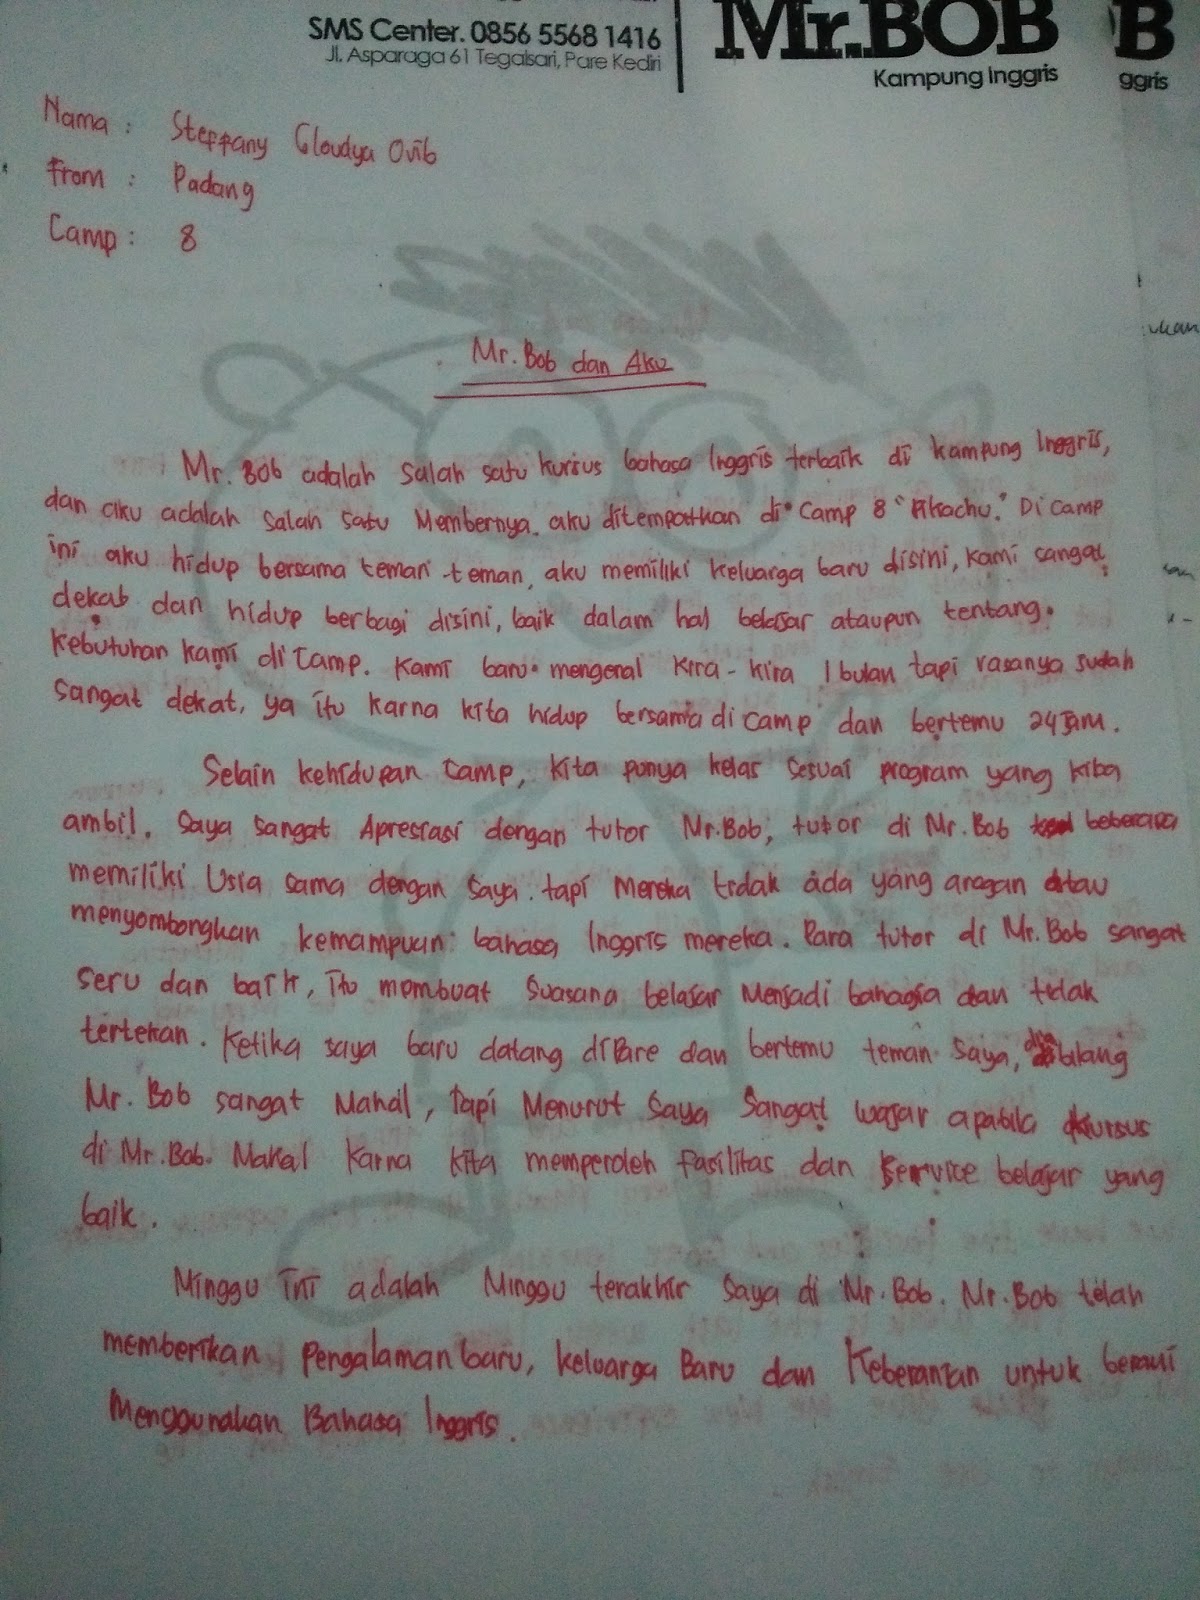 SMS Center. 0856 5568 1416
Jl. Asparaga 61 Tegalsari, Pare Kediri
Mr.BOB
Kampung Inggris
B
ggris
Nama : Steffany Cloudya Ovib
From : Padang
Camp : 8
Mr. Bob dan Aku
Mr. Bob adalah salah satu kursus bahasa Inggris terbaik di kampung Inggris,
dan aku adalah salah satu Membernya. aku ditempatkan di Camp 8 "Pikachu." Di Camp
ini aku hidup bersama teman-teman, aku memiliki keluarga baru disini, kami sangat
dekat dan hidup berbagi disini, baik dalam hal belajar ataupun tentang
kebutuhan kami di Camp. Kami baru mengenal kira-kira 1 bulan tapi rasanya sudah
sangat dekat, ya itu karna kita hidup bersama di camp dan bertemu 24 Jam.
Selain kehidupan camp, kita punya kelas sesuai program yang kita
ambil. Saya sangat Apresiasi dengan tutor Mr.Bob, tutor di Mr.Bob beberapa
memiliki Usia sama dengan saya. tapi Mereka tidak ada yang arogan atau
menyombongkan kemampuan bahasa Inggris mereka. Para tutor di Mr.Bob sangat
seru dan baik, itu membuat suasana belajar Menjadi bahagia dan tidak
tertekan. Ketika saya baru datang di Pare dan bertemu teman saya, dia bilang
Mr. Bob sangat Mahal, tapi Menurut Saya Sangat wajar apabila kursus
di Mr.Bob Mahal karna kita memperoleh fasilitas dan Service belajar yang
baik.
Minggu ini adalah Minggu terakhir Saya di Mr.Bob. Mr.Bob telah
memberikan Pengalaman baru, keluarga Baru dan Keberanian untuk berani
Menggunakan Bahasa Inggris.
ukan